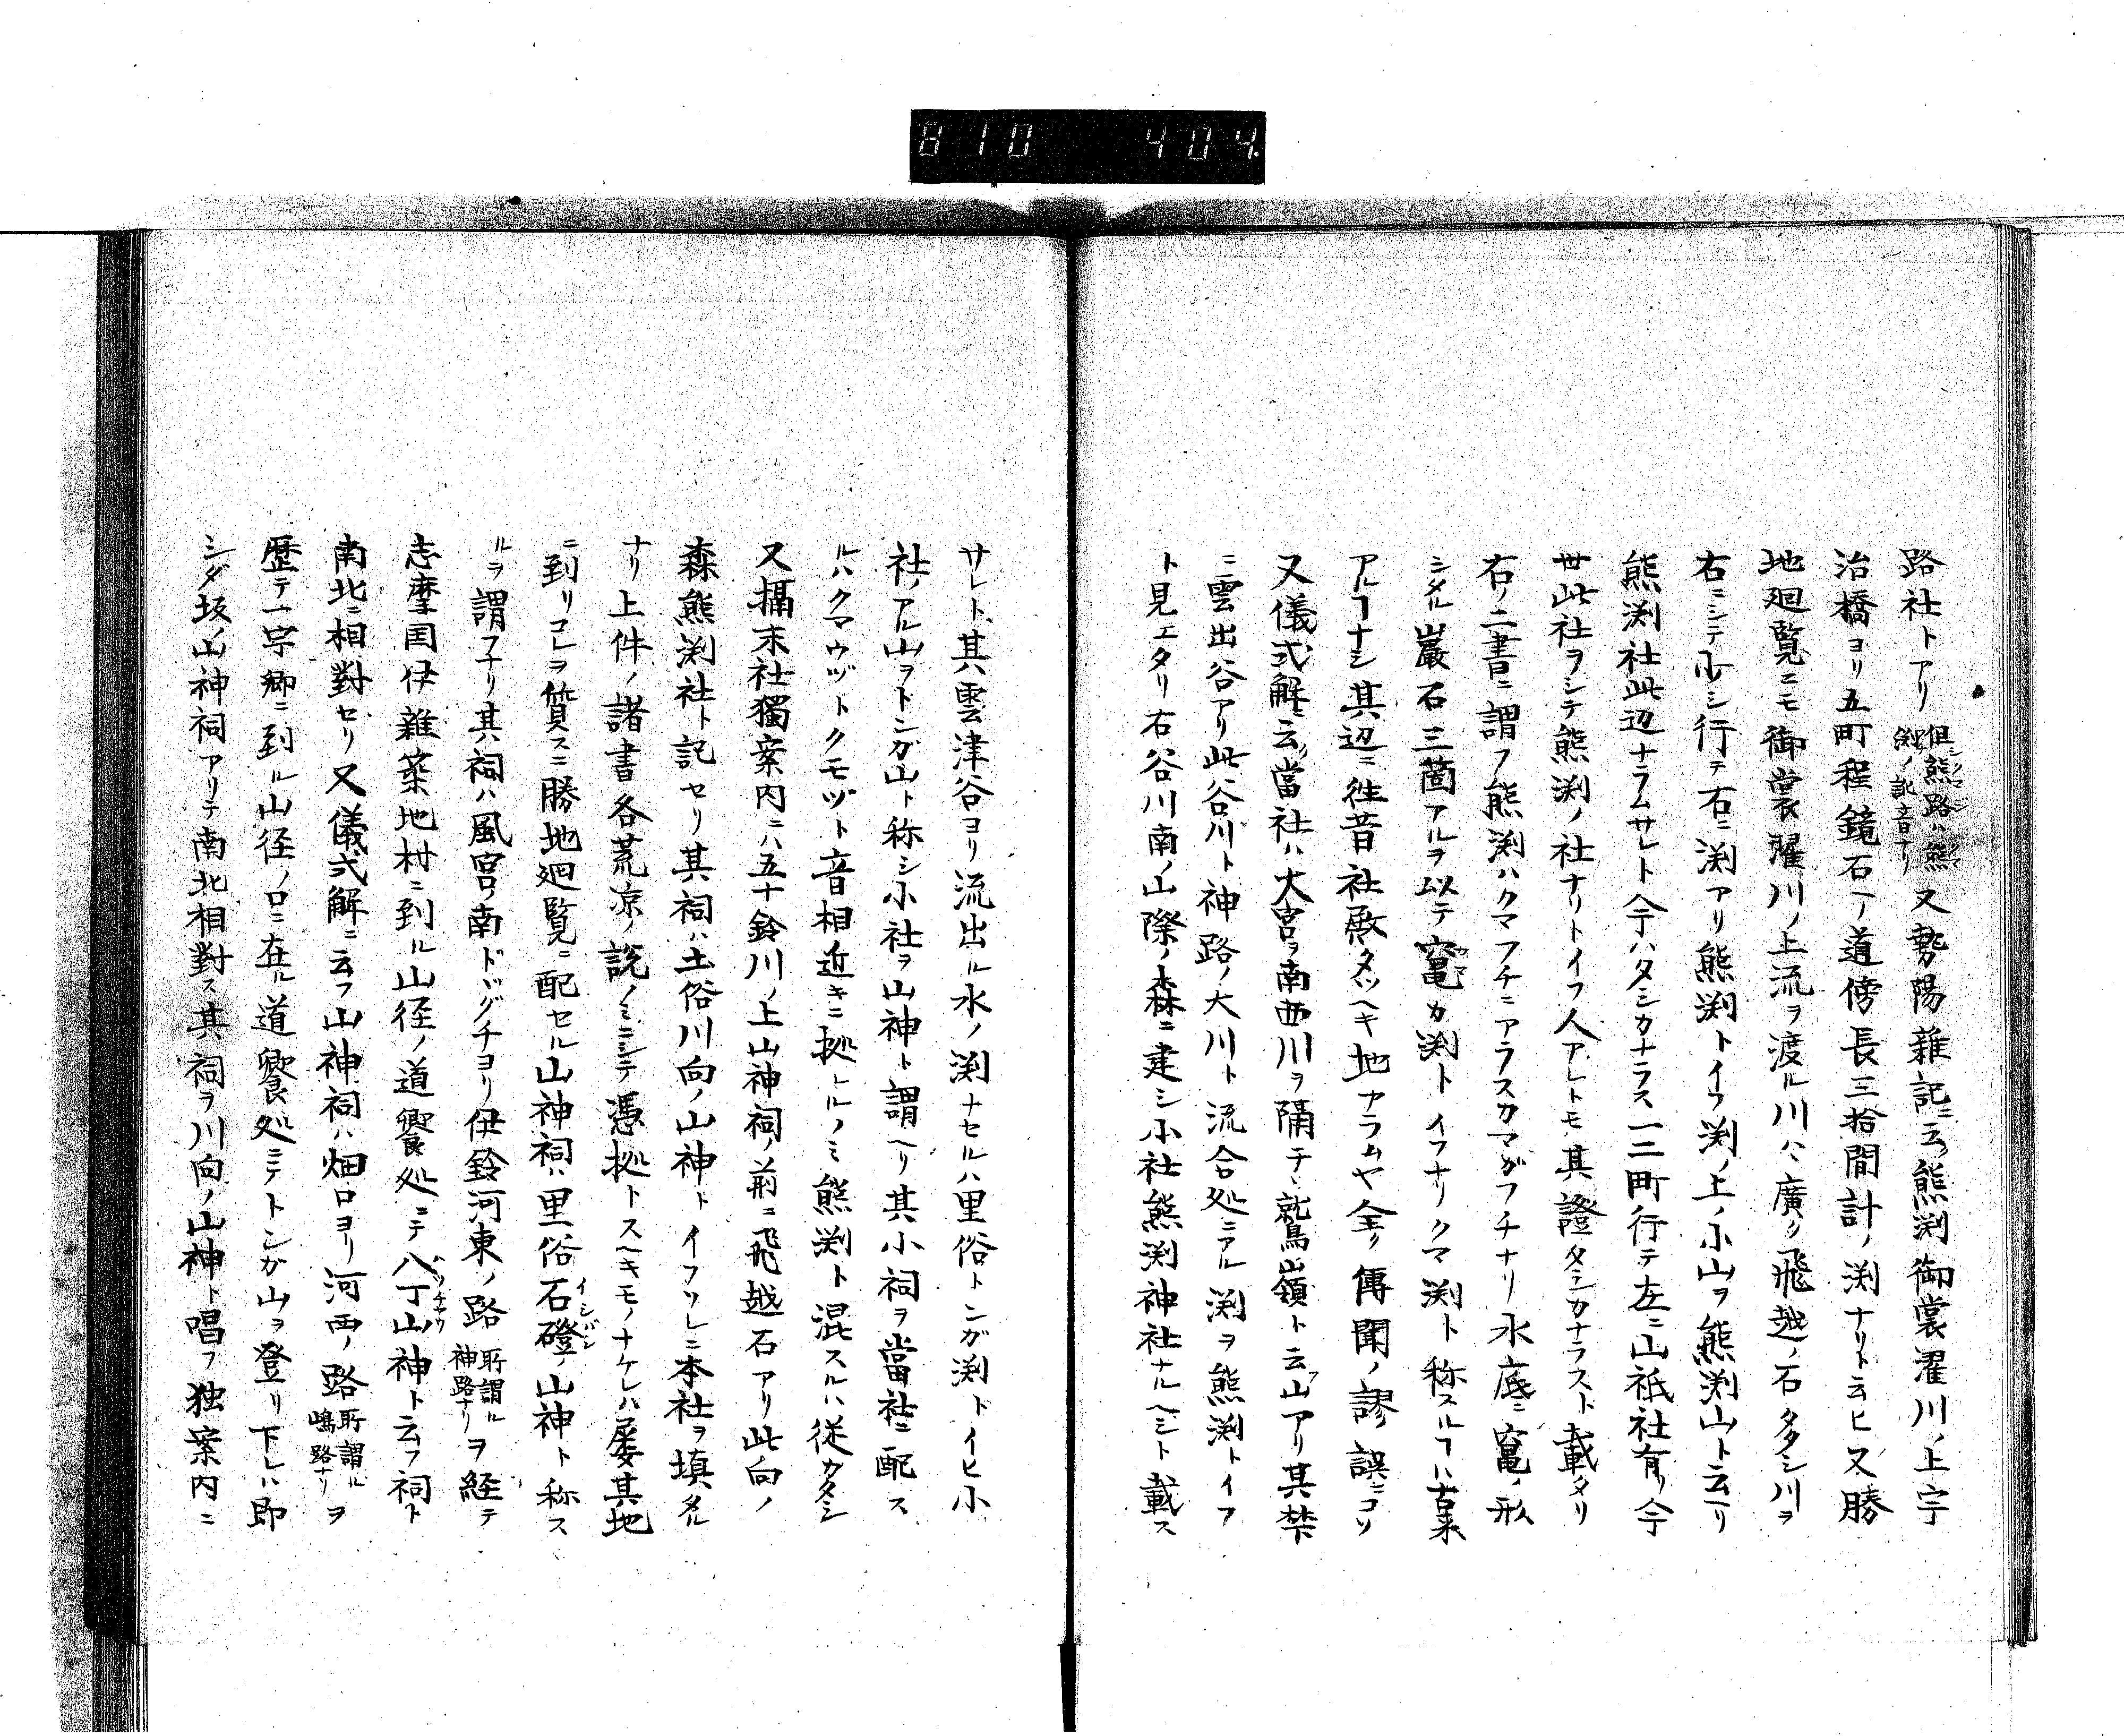 810 404
路社トアリ但シ熊路ハ熊渕ノ訛音ナリ又勢陽雜記ニ云フ熊渕御裳濯川ノ上宇
治橋ヨリ五町程鏡石ノ道傍長三拾間計ノ渕ナリト云ヒ又勝
地廻覧ニモ御裳濯川ノ上流ヲ渡ル川ハヽ廣ク飛越ノ石タタシ川ヲ
右ニシテ少シ行テ右ニ渕アリ熊渕トイフ渕ノ上ノ小山ヲ熊渕山ト云ヘリ
熊渕社此辺ナラムサレト今ハタシカナラス一二町行テ左ニ山祇社有リ今
世此社ヲシテ熊渕ノ社ナリトイフ人アレトモ其證タシカナラスト載タリ
右ノ二書ニ謂フ熊渕ハクマフチニアラスカマガフチナリ水底ニ竃ノ形
シタル巖石三箇アルヲ以テ竃カ渕トイフナリクマ渕ト称スルヿハ古来
アルヿナシ其辺ニ往昔社殿タツヘキ地アラムヤ全ク傳聞ノ謬誤ニコソ
又儀式解ニ云フ當社ハ大宮ヲ南西川ヲ隔テヽ鷲嶺ト云フ山アリ其禁
ニ雲出谷アリ此谷川ト神路ノ大川ト流合処ニアル渕ヲ熊渕トイフ
ト見エタリ右谷川南ノ山際ノ森ニ建シ小社熊渕神社ナルヘシト載ス
サレト其雲津谷ヨリ流出ル水ノ渕ナセルハ里俗トンガ渕トイヒ小
社ノアル山ヲトンガ山ト称シ小社ヲ山神ト謂ヘリ其小祠ヲ當社ニ配ス
ルハクマウヅトクモヅト音相近キニ拠レルノミ熊渕ト混スルハ従カタシ
又攝末社獨案内ニハ五十鈴川ノ上山神祠ノ前ニ飛越石アリ此向ノ
森熊渕社ト記セリ其祠ハ土俗川向ノ山神トイフソレニ本社ヲ填タル
ナリ上件ノ諸書各荒凉ノ説ノミニシテ憑拠トスヘキモノナケレハ屡其地
ニ到リコレヲ質スニ勝地廻覧ニ配セル山神祠ハ里俗石磴ノ山神ト称ス
ルヲ謂フナリ其祠ハ風宮ノ南ドバグチヨリ伊鈴河東ノ路所謂ル神路ナリヲ経テ
志摩国伊雜築地村ニ到ル山径ノ道饗処ニテ八丁山神ト云フ祠ト
南北ニ相對セリ又儀式解ニ云フ山神祠ハ畑口ヨリ河西ノ路所謂ル嶋路ナリヲ
歴テ一宇郷ニ到ル山径ノ口ニ在ル道饗処ニテトンガ山ヲ登リ下レハ即
シダ坂ノ山神祠アリテ南北相對ス其祠ヲ川向ノ山神ト唱フ独案内ニ